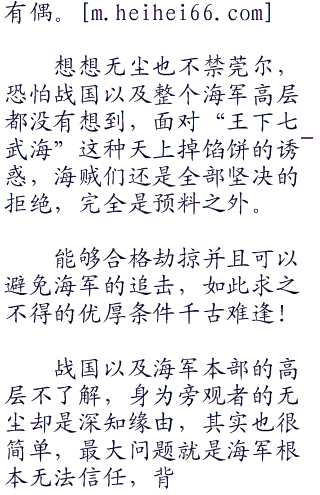 有偶。[m.heihei66.com]
想想无尘也不禁莞尔，
恐怕战国以及整个海军高层
都没有想到，面对“王下七
武海”这种天上掉馅饼的诱
惑，海贼们还是全部坚决的
拒绝，完全是预料之外。
能够合格劫掠并且可以
避免海军的追击，如此求之
不得的优厚条件千古难逢！
战国以及海军本部的高
层不了解，身为旁观者的无
尘却是深知缘由，其实也很
简单，最大问题就是海军根
本无法信任，背